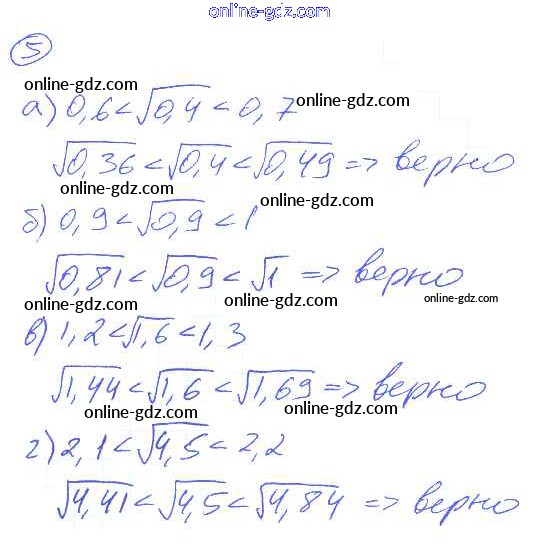 online-gdz.com
5
online-gdz.com
а) 0,6 < √0,4 < 0,7 online-gdz.com
√0,36 < √0,4 < √0,49 => верно
online-gdz.com
б) 0,9 < √0,9 < 1 online-gdz.com
√0,81 < √0,9 < √1 => верно
online-gdz.com online-gdz.com online-gdz.com
в) 1,2 < √1,6 < 1,3
√1,44 < √1,6 < √1,69 => верно
online-gdz.com online-gdz.com
г) 2,1 < √4,5 < 2,2
√4,41 < √4,5 < √4,84 => верно